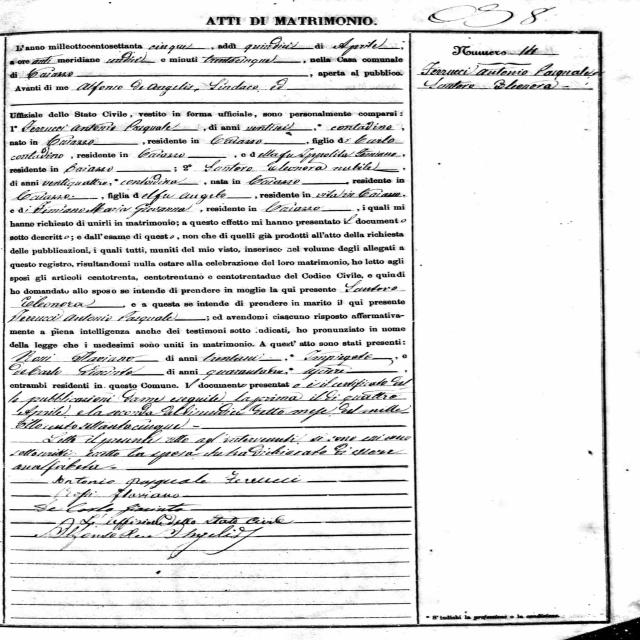 ATTI DI MATRIMONIO.
8
L'anno milleottocentosettanta cinque, addì quindici di Aprile,
a ore anti meridiane undici e minuti trentacinque, nella Casa comunale
di Caiazzo, aperta al pubblico.
Avanti di me Alfonso de Angelis, Sindaco ed
Uffiziale dello Stato Civile, vestito in forma ufficiale, sono personalmente comparsi:
1° Ferrucci Antonio Pasquale, di anni contadino,
nato in Caiazzo, residente in Caiazzo, figlio di Carlo
contadino, residente in Caiazzo, e di
residente in Caiazzo; 2° Santoro Eleonora nubile
di anni ventiquattro, contadina, nata in Caiazzo, residente in
Caiazzo, figlia del fu Angelo, residente in vita in Caiazzo
e di Maria Giovanna, residente in Caiazzo, i quali mi
hanno richiesto di unirli in matrimonio; a questo effetto mi hanno presentato il documento
sotto descritto; e dall'esame di questo, non che di quelli già prodotti all'atto della richiesta
delle pubblicazioni, i quali tutti, muniti del mio visto, inserisco nel volume degli allegati a
questo registro, risultandomi nulla ostare alla celebrazione del loro matrimonio, ho letto agli
sposi gli articoli centotrenta, centotrentuno e centotrentadue del Codice Civile, e quindi
ho domandato allo sposo se intende di prendere in moglie la qui presente Santoro
Eleonora, e a questa se intende di prendere in marito il qui presente
Ferrucci Antonio Pasquale; ed avendomi ciascuno risposto affermativamente
a piena intelligenza anche dei testimoni sotto indicati, ho pronunziato in nome
della legge che i medesimi sono uniti in matrimonio. A quest'atto sono stati presenti:
Rossi Flaviano di anni Impiegato, e
de Carlo Giacinto di anni
entrambi residenti in questo Comune. Il documento presentato è il certificato del
le pubblicazioni da me eseguite la prima il dì quattro
Aprile e la seconda detto mese del mille
Ottocento settantacinque =
Letto il presente atto agl'intervenuti si sono
sottoscritti eccetto la sposa che ha dichiarato di essere
analfabeta =
Antonio Pasquale Ferrucci
Rossi Flaviano
De Carlo Giacinto
L'uffiziale dello Stato Civile
Alfonso de Angelis
Numero 14
Ferrucci Antonio Pasquale
Santoro Eleonora
* S'indichi la professione o la condizione.